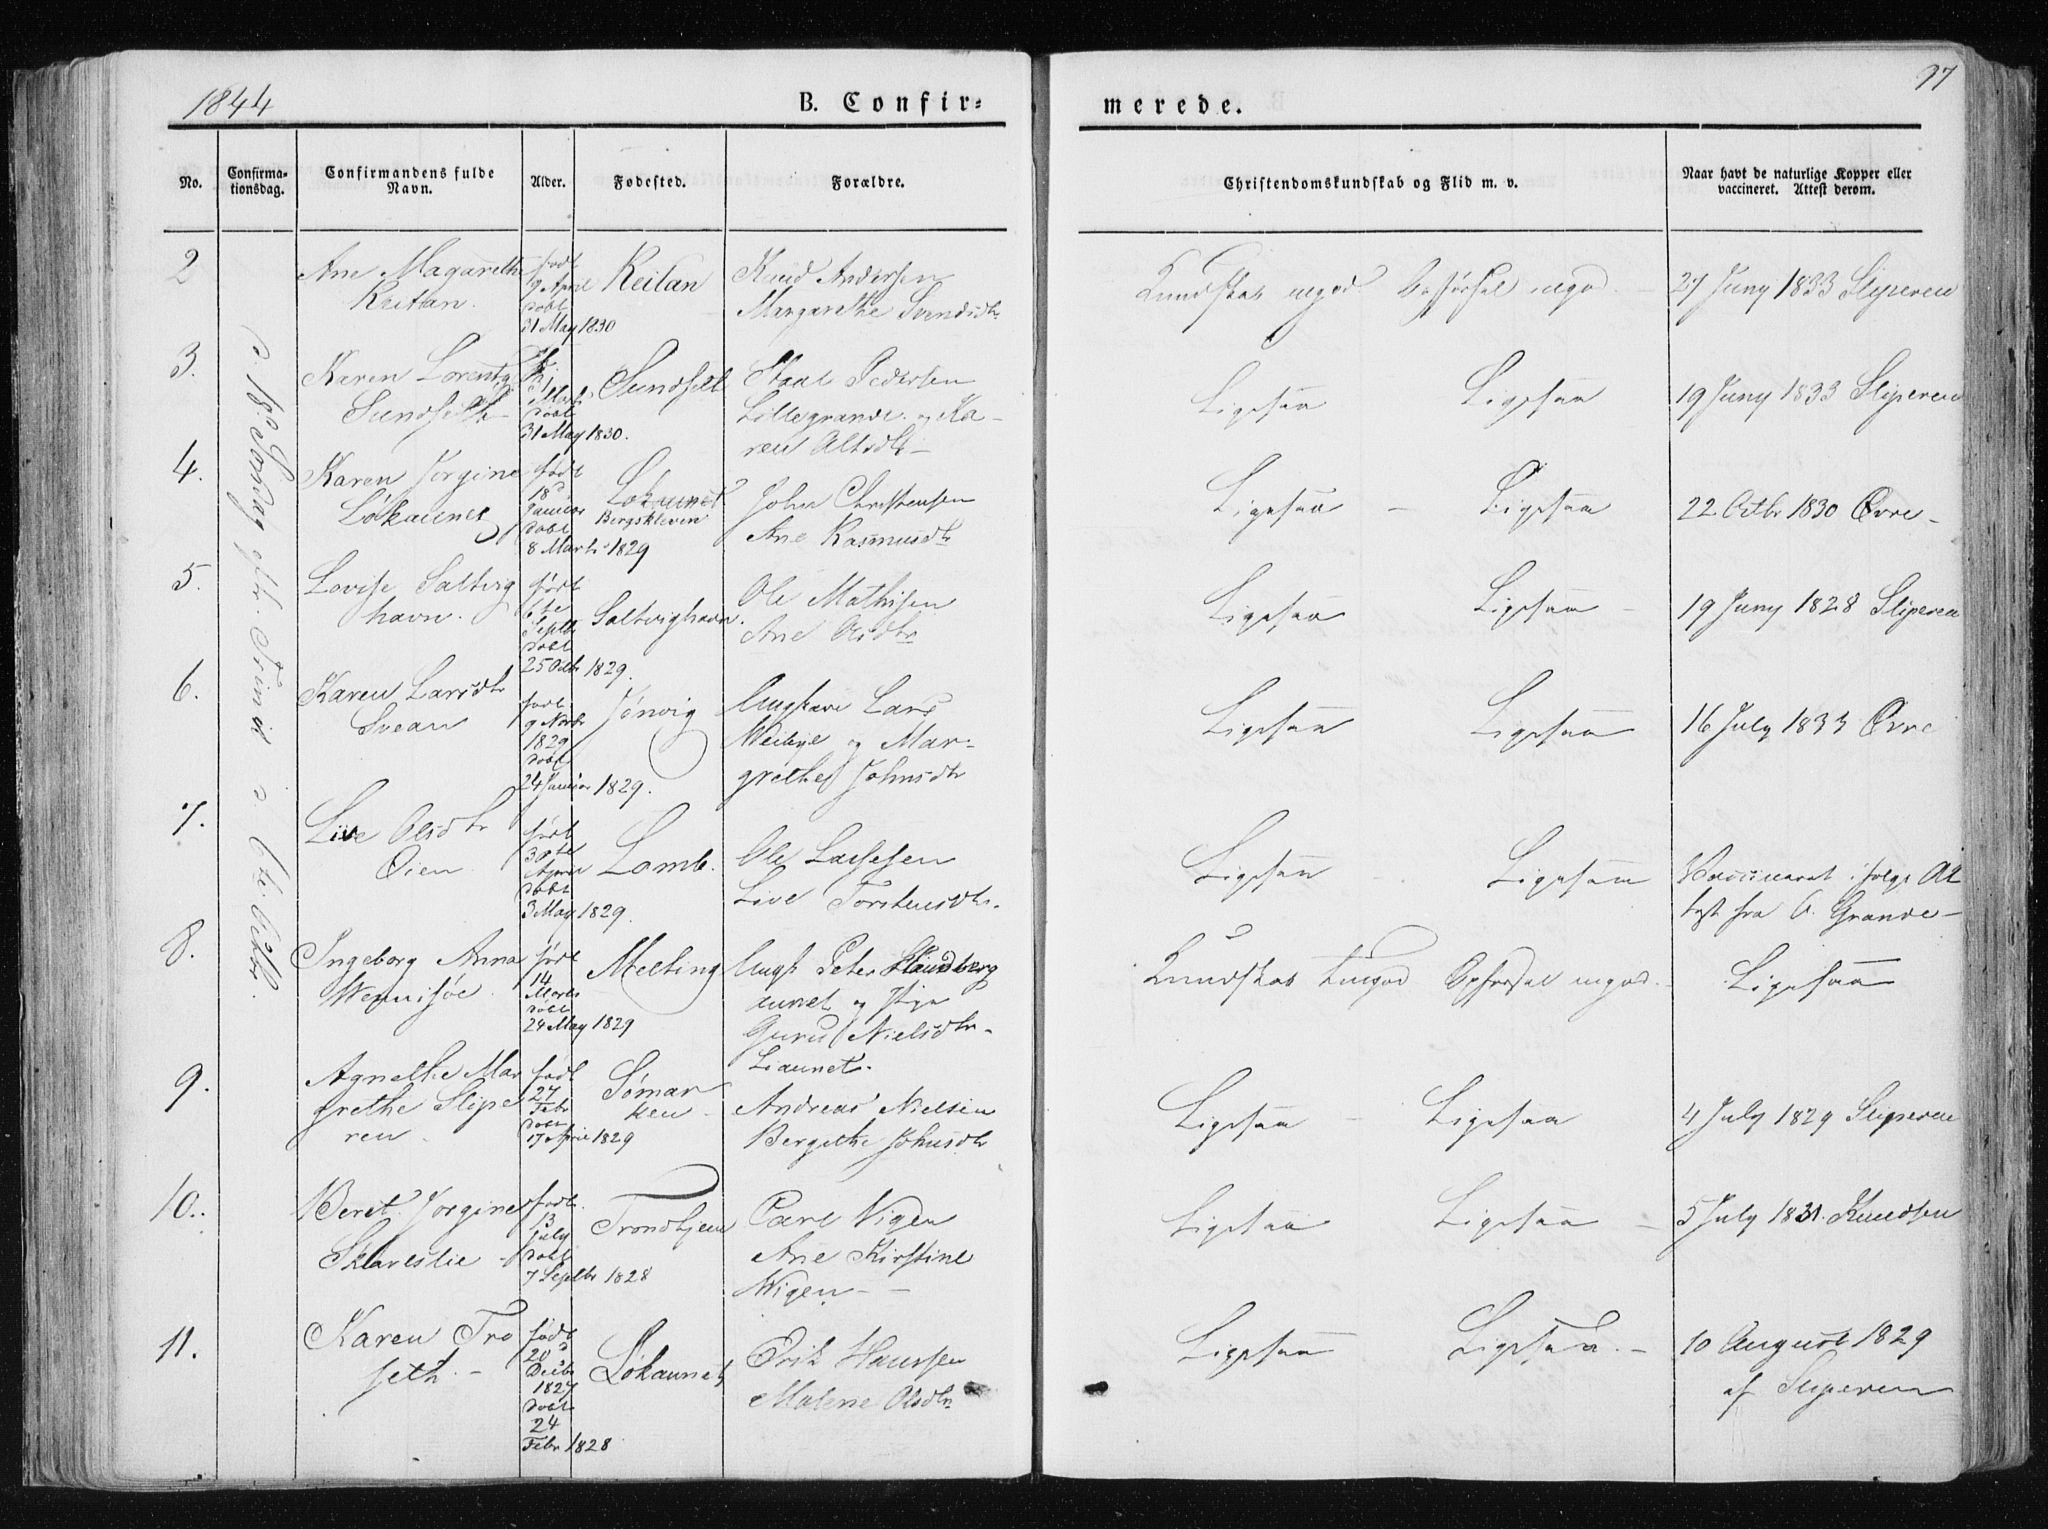 1844
B. Confir-
merede.
97
No.
Confirma-
tionsdag.
Confirmandens fulde
Navn.
Alder.
Fødested.
Forældre.
Christendomskundskab og Flid m. v.
Naar havt de naturlige Kopper eller
vaccineret. Attest derom.
2
Ane Magarethe
Reitan.
født
9 April
døbt
31 May 1830
Reitan
Knud Andersen
Margarethe Svendsdtr
Kundskab mgod Opførsel mgod.
27 Juny 1833 Sliperen
3.
Karen Lorentz
Sundseth
31
Marts
døbt
31 May 1830.
Sundseth
Pedersen
Lillegrande og Ka-
ren
Ligesaa Ligesaa
19 Juny 1833 Sliperen
4.
Karen Jørgine
Løkaunet
født
18d
Januar
døbt
8 Marts 1829
Løkaunet
Bergskleven
John Christensen
Ane Rasmusdtr
Ligesaa - Ligesaa
22 Octbr 1830 Øvre-
5.
Lovise Saltvig
havn.
født
6te
Septbr
døbt
25 Octbr 1829.
Saltvighavn.
Ole Mathisen
Ane Olsdtr
Ligesaa Ligesaa -
19 Juny 1828 Sliperen
6.
Karen Larsdtr
Svean
født
9 Novbr
1829
døbt
24 Januar 1829.
Jønvig
Ungkarl Lars
Weibye og Mar-
grethe Johnsdtr
Ligesaa Ligesaa
16 July 1833 Øvre
7.
Live Olsdtr
Øien
født
30te
April
døbt
3 May 1829.
Lomb.
Ole Lassesen
Live Torstensdtr.
Ligesaa Ligesaa
Vaccineret ifølge At
test fra A. Grande-
8.
Ingeborg Anna
Wennisøe.
født
14
Marts
døbt
24 May 1829
Melting
Ungk Peter Haugberg
aunet og Pige
Guru Nielsdtr
Liaunet.
Kundskab tmgod Opførsel mgod.
Ligesaa
9.
Agnethe Mar
grethe Slipe
ren
født
27
Febr
døbt
17 April 1829
Sømar
ken
Andreas Nielsen
Bergithe Johnsdtr
Ligesaa - Ligesaa
4 July 1829 Sliperen
10.
Beret Jørgine
Skaveslie
født
13
July
døbt
7 Septbr 1828
Trondhjem
Carl Wigen
Ane Kirstine
Wigen -
Ligesaa Ligesaa -
5 July 1831. Knudsen
11.
Karen Tro
seth. -
født
20d
Decbr
1827
døbt
24
Febr 1828
Løkaunet
Erik Hanssen
Malene Olsdtr
Ligesaa Ligesaa. -
10 August 1829
af Sliperen
d. 18de Søndag eft. Trinit. d. 6te Octbr.